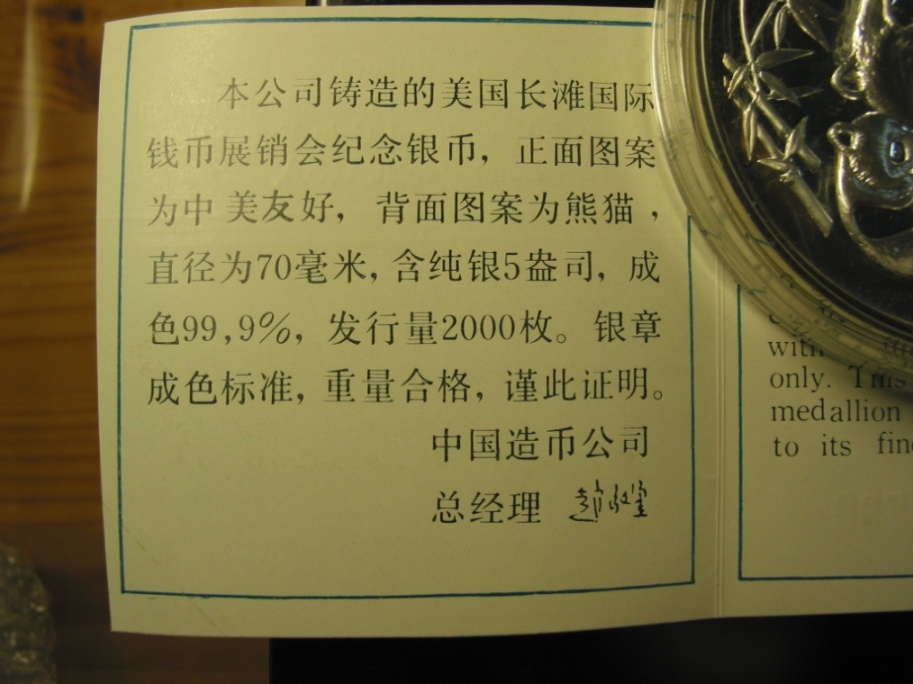 本公司铸造的美国长滩国际
钱币展销会纪念银币，正面图案
为中美友好，背面图案为熊猫，
直径为70毫米，含纯银5盎司，成
色99,9%，发行量2000枚。银章
成色标准，重量合格，谨此证明。
中国造币公司
总经理
with
only. This
medallion
to its fin